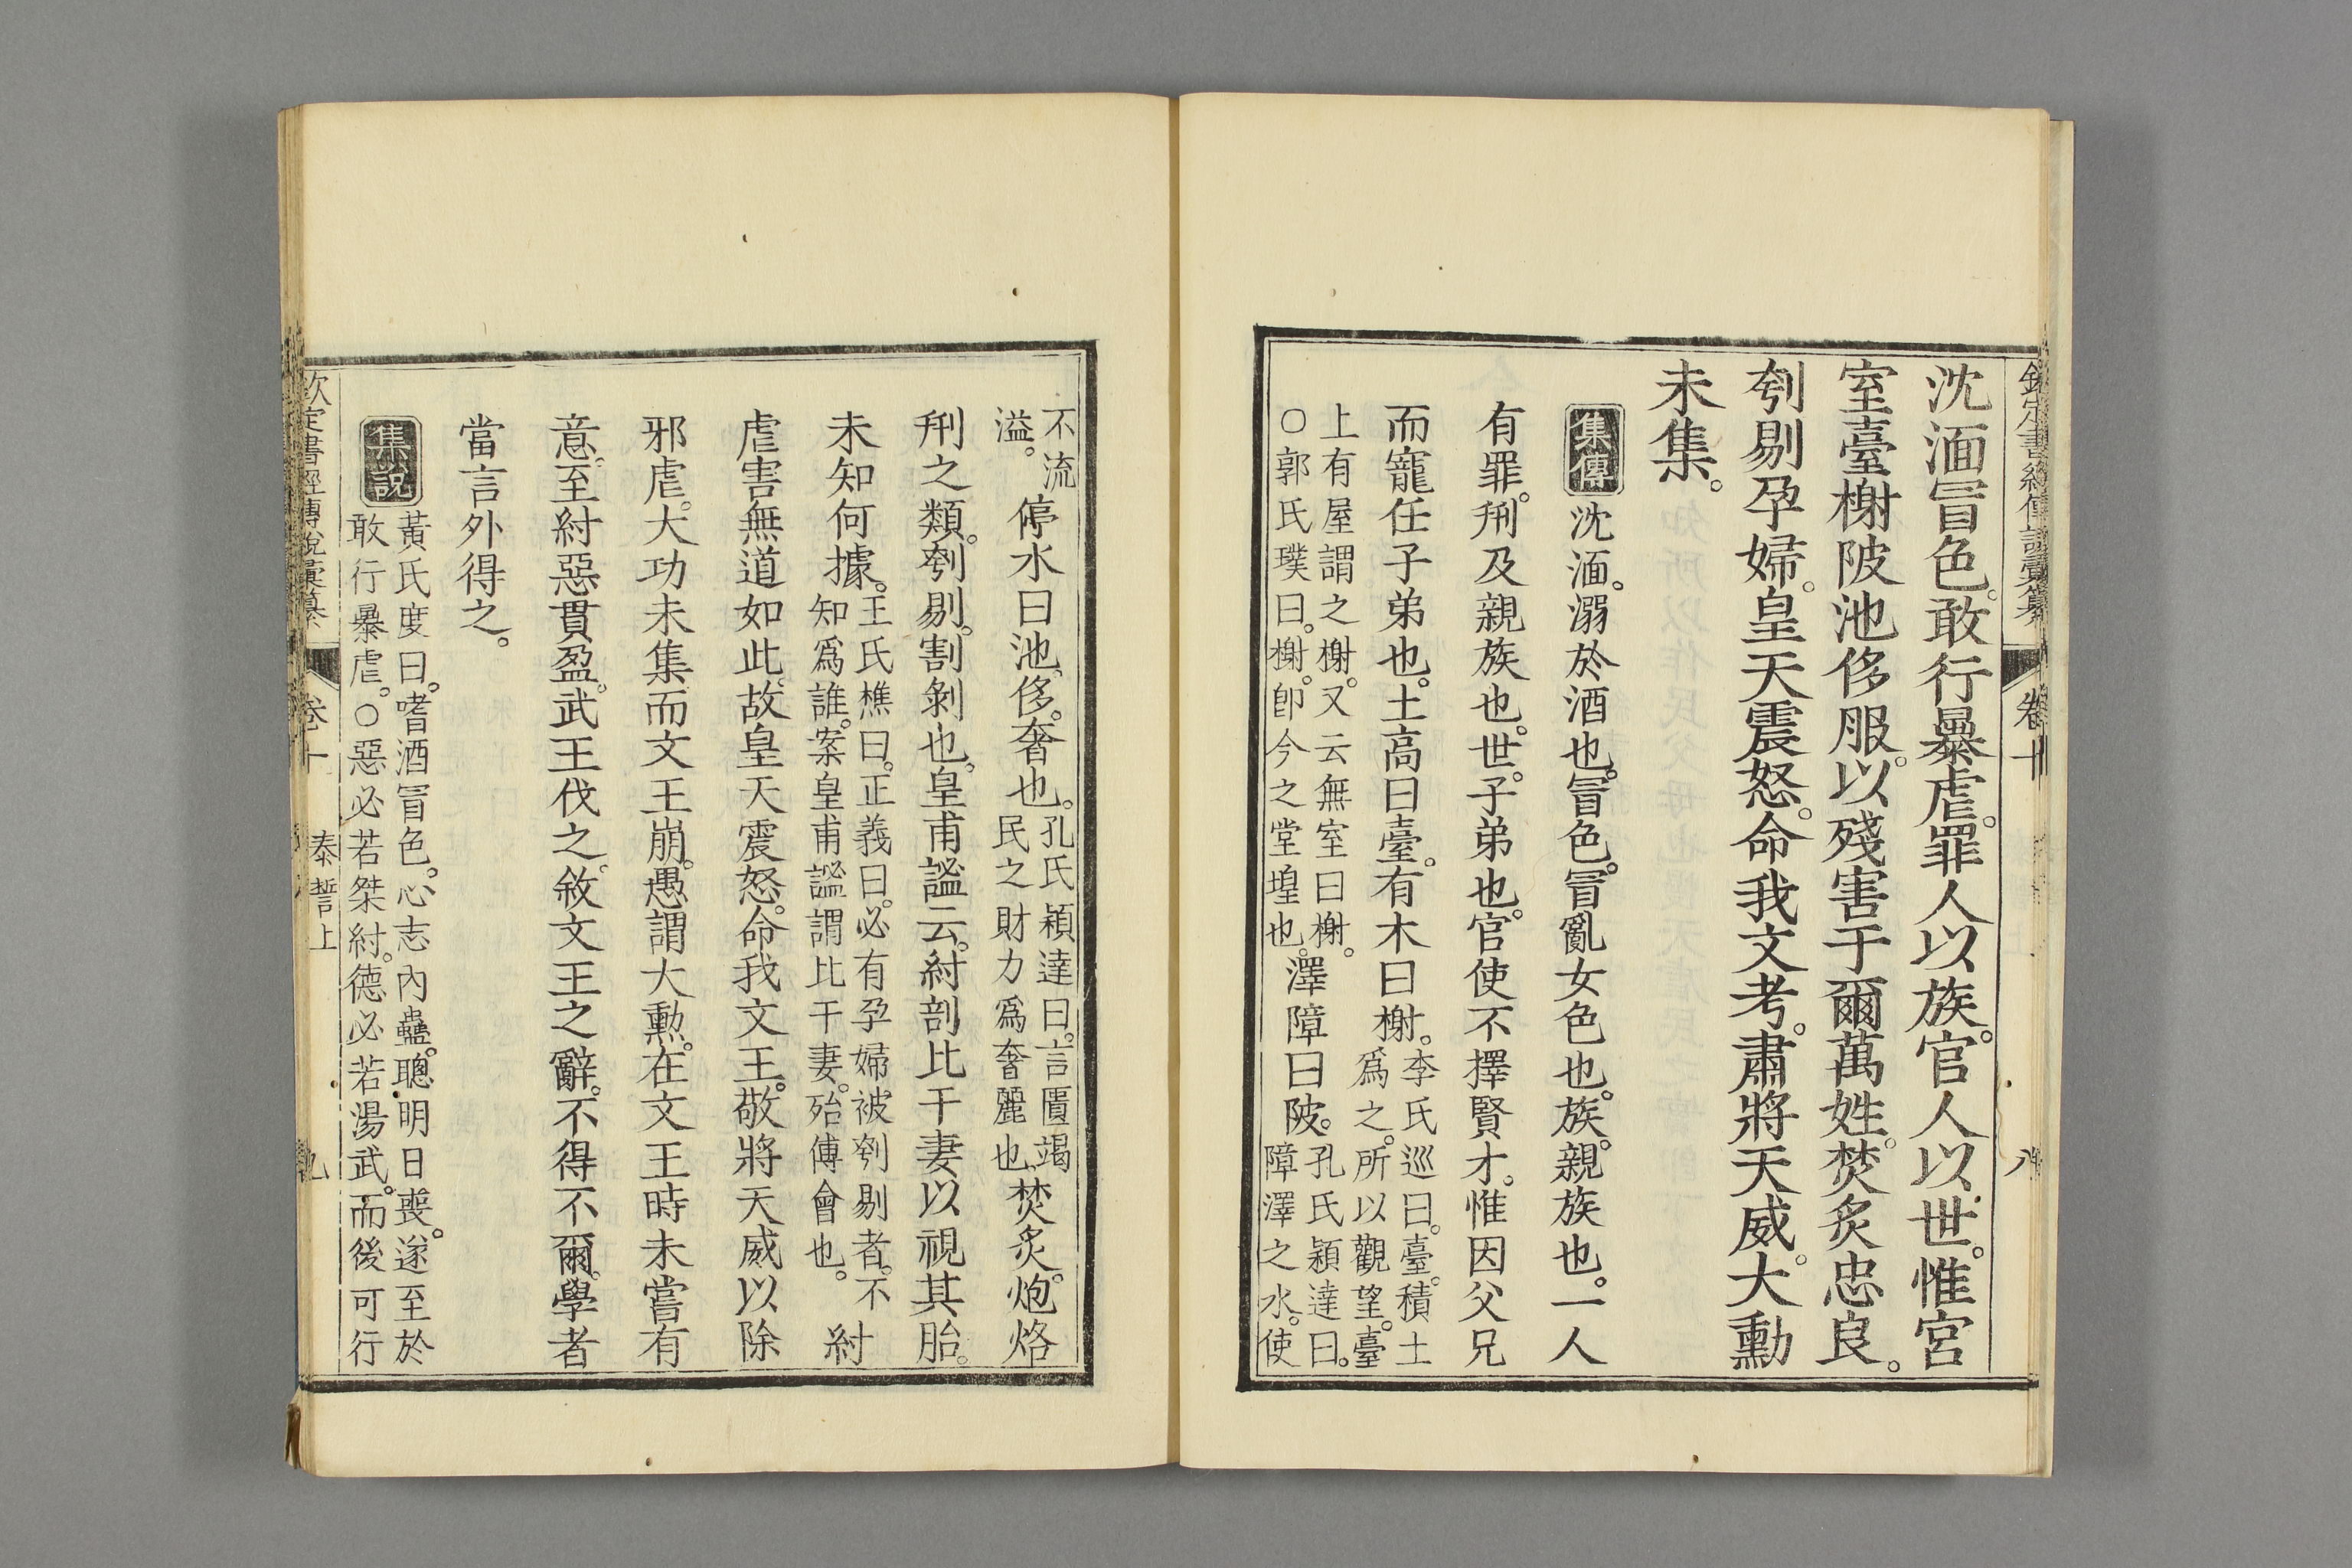 欽定書經傳說彙纂 卷十 八
沈湎冒色。敢行暴虐。罪人以族。官人以世。惟宮
室臺榭陂池侈服。以殘害于爾萬姓。焚炙忠良。
刳剔孕婦。皇天震怒。命我文考。肅將天威。大勳
未集。
集傳 沈湎。溺於酒也。冒色。冒亂女色也。族。親族也。一人
有罪。刑及親族也。世。子弟也。官使不擇賢才。惟因父兄
而寵任子弟也。土高曰臺。有木曰榭。
李氏巡曰。臺。積土
爲之。所以觀望。臺
上有屋謂之榭。又云無室曰榭。
○郭氏璞曰。榭。卽今之堂堭也。
澤障曰陂。
孔氏穎達曰。
障澤之水。使
不流
溢。
停水曰池。侈。奢也。
孔氏穎達曰。言匱竭
民之財力爲奢麗也。
焚炙。炮烙
刑之類。刳剔。割剝也。皇甫謐云。紂剖比干妻以視其胎。
未知何據。
王氏樵曰。正義曰。必有孕婦被刳剔者。不
知爲誰。案皇甫謐謂比干妻。殆傅會也。
紂
虐害無道如此。故皇天震怒。命我文王。敬將天威以除
邪虐。大功未集而文王崩。愚謂大勳。在文王時未嘗有
意。至紂惡貫盈。武王伐之。敘文王之辭。不得不爾。學者
當言外得之。
集說
黃氏度曰。嗜酒冒色。心志內蠱。聰明日喪。遂至於
敢行暴虐。○惡必若桀紂。德必若湯武。而後可行
欽定書經傳說彙纂 卷十 泰誓上 九